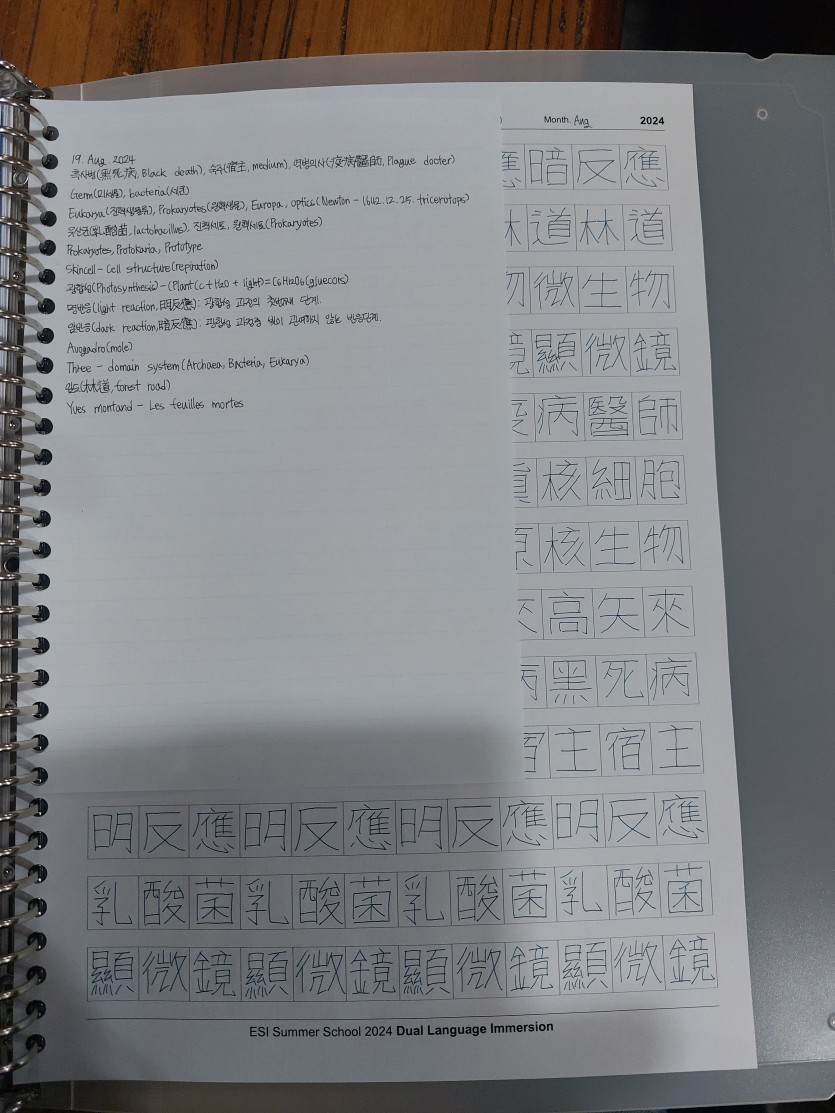 Month. Aug 2024
19. Aug. 2024
흑사병(黑死病, Black death), 숙주(宿主, medium), 역병의사(疫病醫師, Plague docter)
Germ(미생물), bacteria(세균)
Eukarya(진핵생물류), Prokaryotes(원핵생물), Europa, optics(Newton - 1642.12.25. tricerotops)
유산균(乳酸菌, lactobacillus), 진핵세포, 원핵세포(Prokaryotes)
Prokaryotes, Protokaria, Prototype
Skincell - Cell structure(repiration)
광합성(Photosynthesis) - (Plant(c + H2O + light) = C6H12O6(gluecors)
명반응(light reaction, 明反應): 광합성 과정의 첫번째 단계.
암반응(dark reaction, 暗反應): 광합성 과정중 빛이 관여하지 않는 반응단계.
Avogadro(mole)
Three - domain system(Archaea, Bacteria, Eukarya)
임도(林道, forest road)
Yves montand - Les feuilles mortes
應暗反應
林道林道
物微生物
鏡顯微鏡
病醫師
眞核細胞
原核生物
來高矢來
病黑死病
宿主宿主
明反應明反應明反應明反應
乳酸菌乳酸菌乳酸菌乳酸菌
顯微鏡顯微鏡顯微鏡顯微鏡
ESI Summer School 2024 Dual Language Immersion